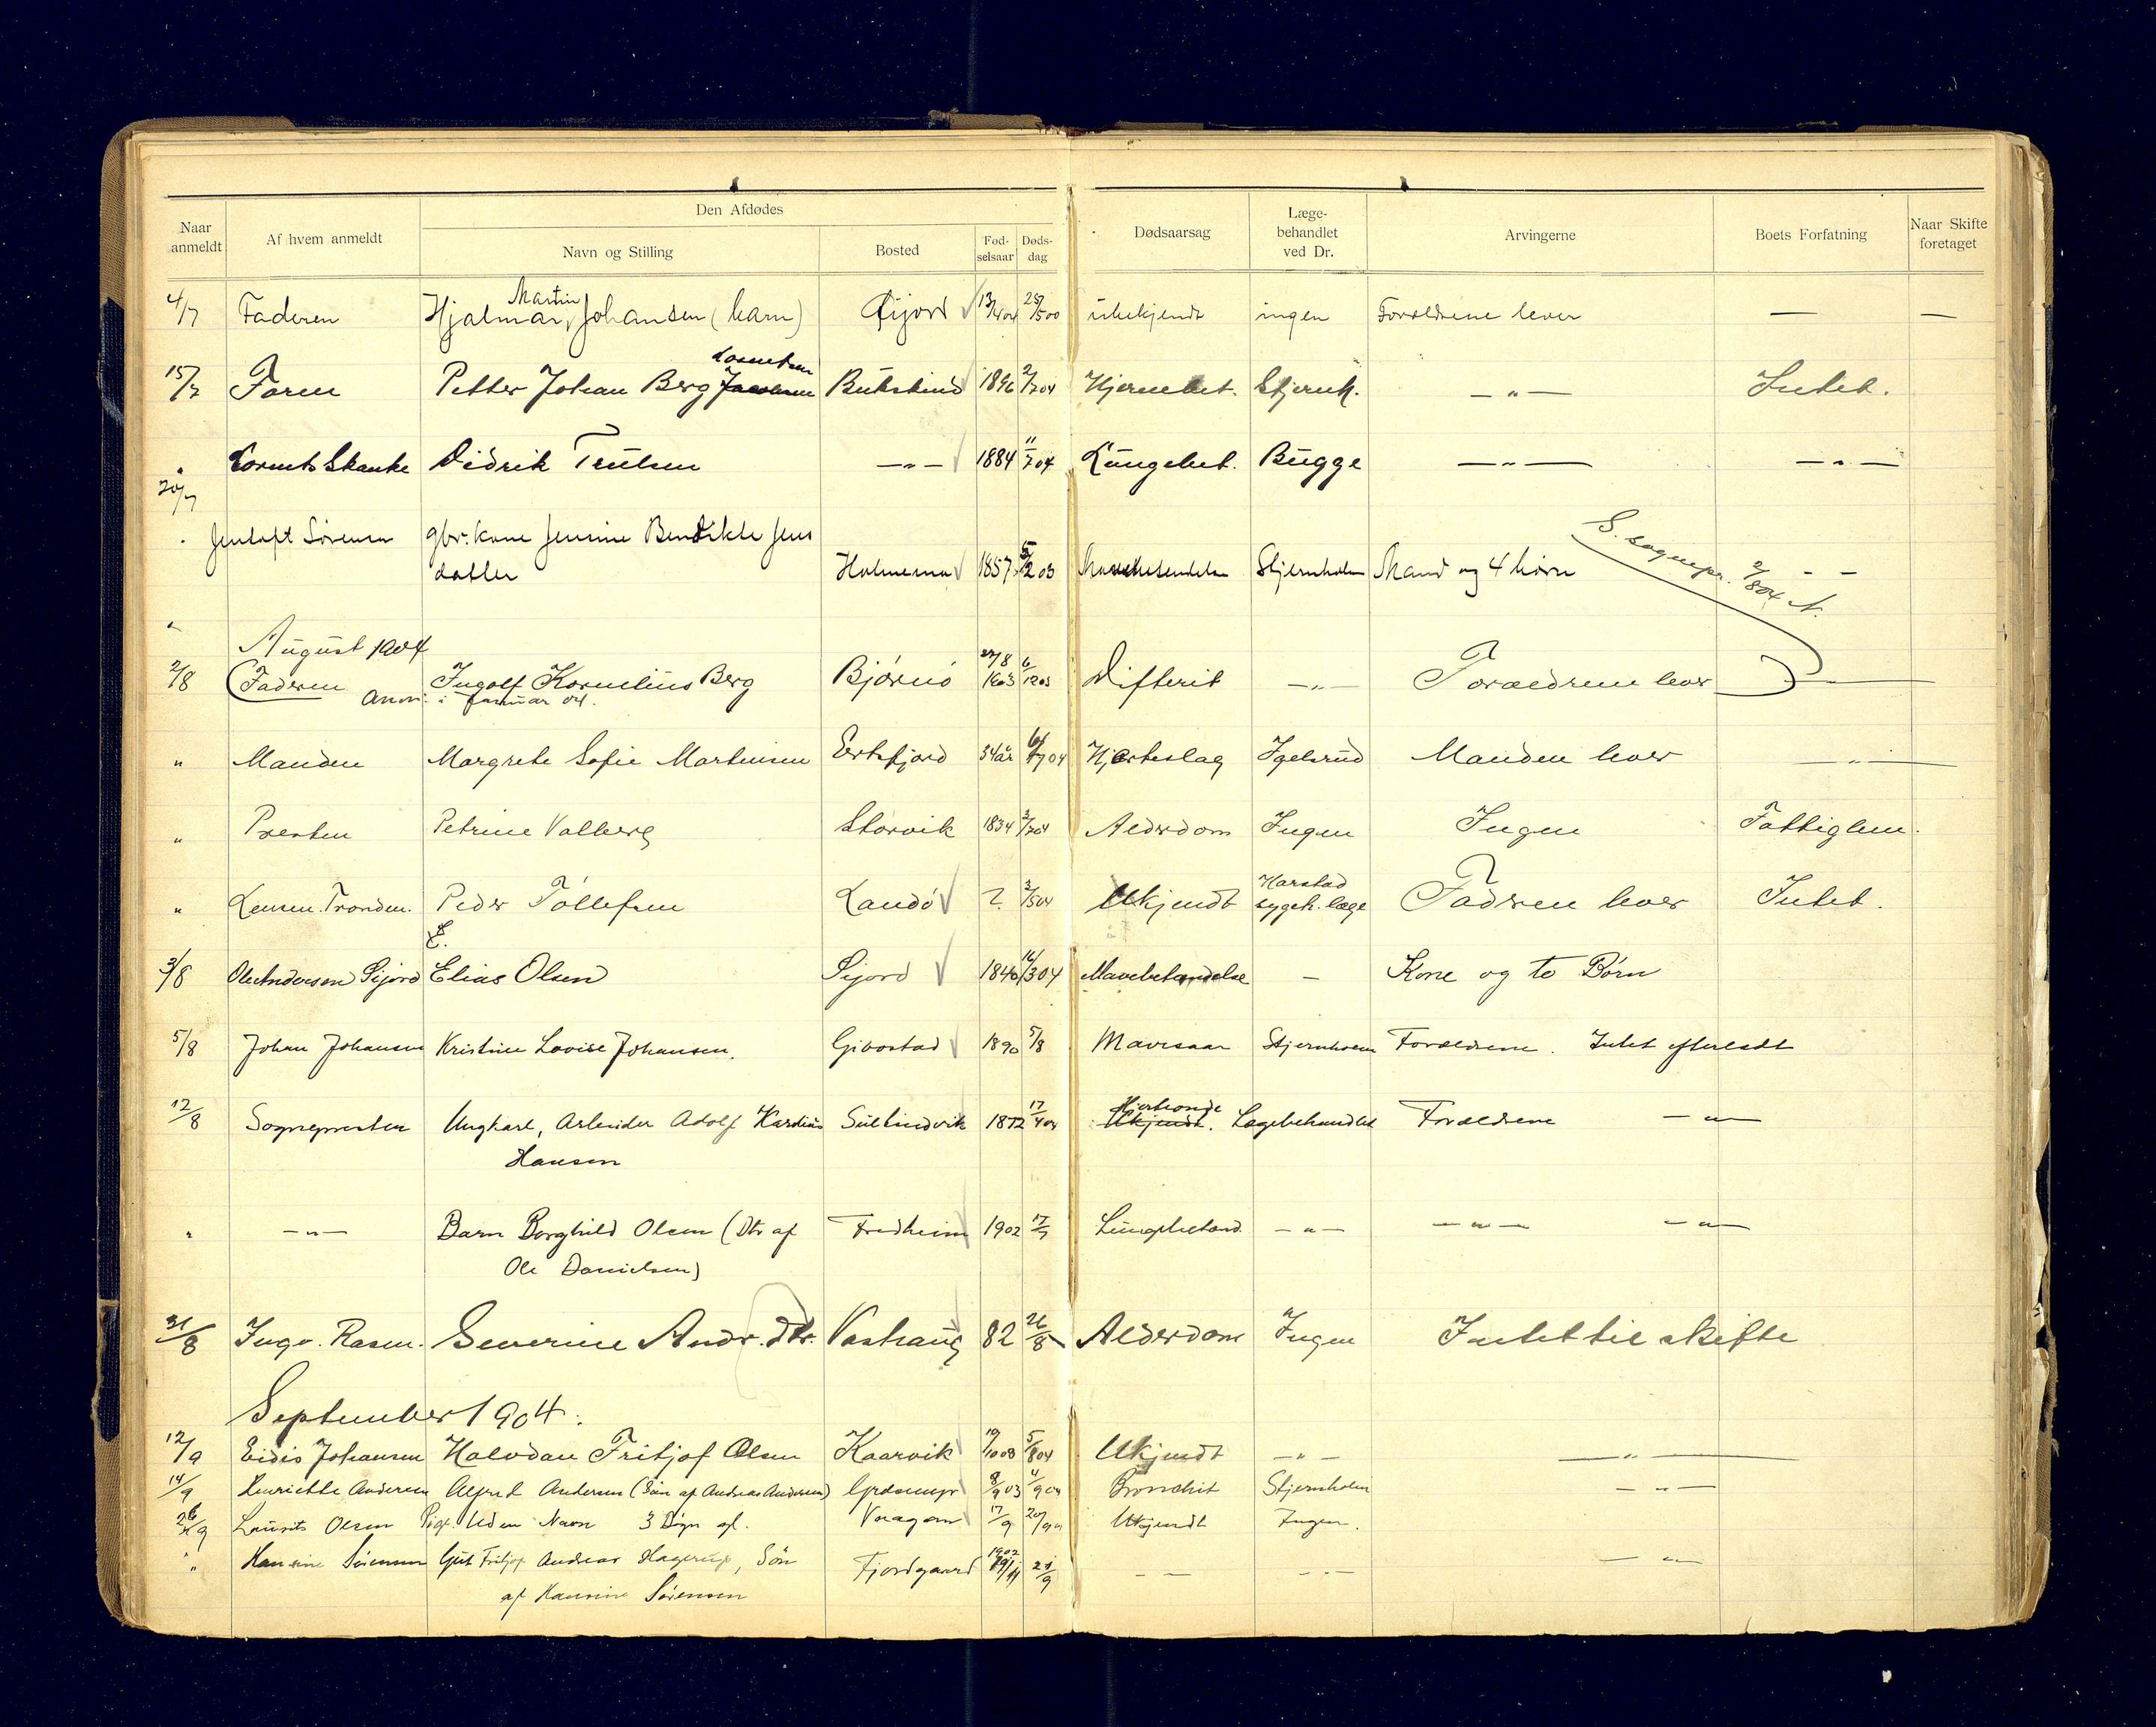 Naar anmeldt | Af hvem anmeldt | Den Afdødes | Navn og Stilling | Bosted | Fød-selsaar | Døds-dag | Dødsaarsag | Læge-behandlet ved Dr. | Arvingerne | Boets Forfatning | Naar Skifte foretaget
4/7 Faderen Hjalmar Martin Johansen (barn) 13/4 04 ubekjendt ingen Forældrene lever — —
15/7 Faren Petter Johan Berg Bukskind 1896 2/7 04 Hjernebet. Stjernh. — " — Intet.
" Skanke Didrik Trulsen — " — 1884 11/7 04 Lungebet. Bugge — " — — " —
20/7
Jentoft Sørensen gbr. kone Jensine Bendikte Jens
datter 1857 Stjernholm Mand og 4 børn - -
S. sognepr. 2/8 04
August 1904
2/8 Faderen Ingolf Kornelius Berg Bjørnø 6/12 03 Difterit — " — Forældrene lever
Anm. i januar 04.
" Manden Margrete Sofie Martinsen 34 år Hjerteslag Igelsrud Manden lever — " —
" Presten Petrine Valberg Storvik 1834 2/7 04 Alderdom Ingen Ingen Fattiglem.
" Lensm. Tronden. Peder Tøllefsen Landø ? 3/5 04 Ukjendt Harstad sygeh. læge Faderen lever Intet.
E.
3/8 Ole Andersen Sijord Elias Olsen Sijord 1840 16/3 04 Mavebetændelse — Kone og to Børn
5/8 Johan Johansen Kristine Lovise Johansen. Gibostad 1890 5/8 Mavesaar Stjernholm Forældrene. Intet efterladt
12/8 Sognepresten Ungkarl, Arlender Adolf Kardius 1872 17/4 04 Hjerteonde Ukjendt. Lægebehandlet Forældrene — " —
Hansen
" — " — Barn Borghild Olsen (Dtr af Fredheim 1902 17/7 Lungebetænd. — " — — " — — " —
Ole Danielsen)
31/8 Ingv. Rasm. Severine Andr. dtr. Vashaug 82 26/8 Alderdom Ingen Intet til skifte
September 1904.
12/9 Eidis Johansen Halvdan Fritjof Olsen Kaarvik 19/10 03 5/8 04 Ukjendt — " — — " —
14/9 Henriette Andersen Alfred Andersen (Søn af Andreas Andersen) 8/9 03 Bronchit Stjernholm — " —
26/9 Laurits Olsen Pige Uden Navn 3 Døgn gl. 17/9 Ukjendt Ingen.
" Hansine Sørensen Gut Fritjof Andreas Hagerup, Søn Fjordgaard 1902 21/9 - - - " - — " —
af Hansine Sørensen